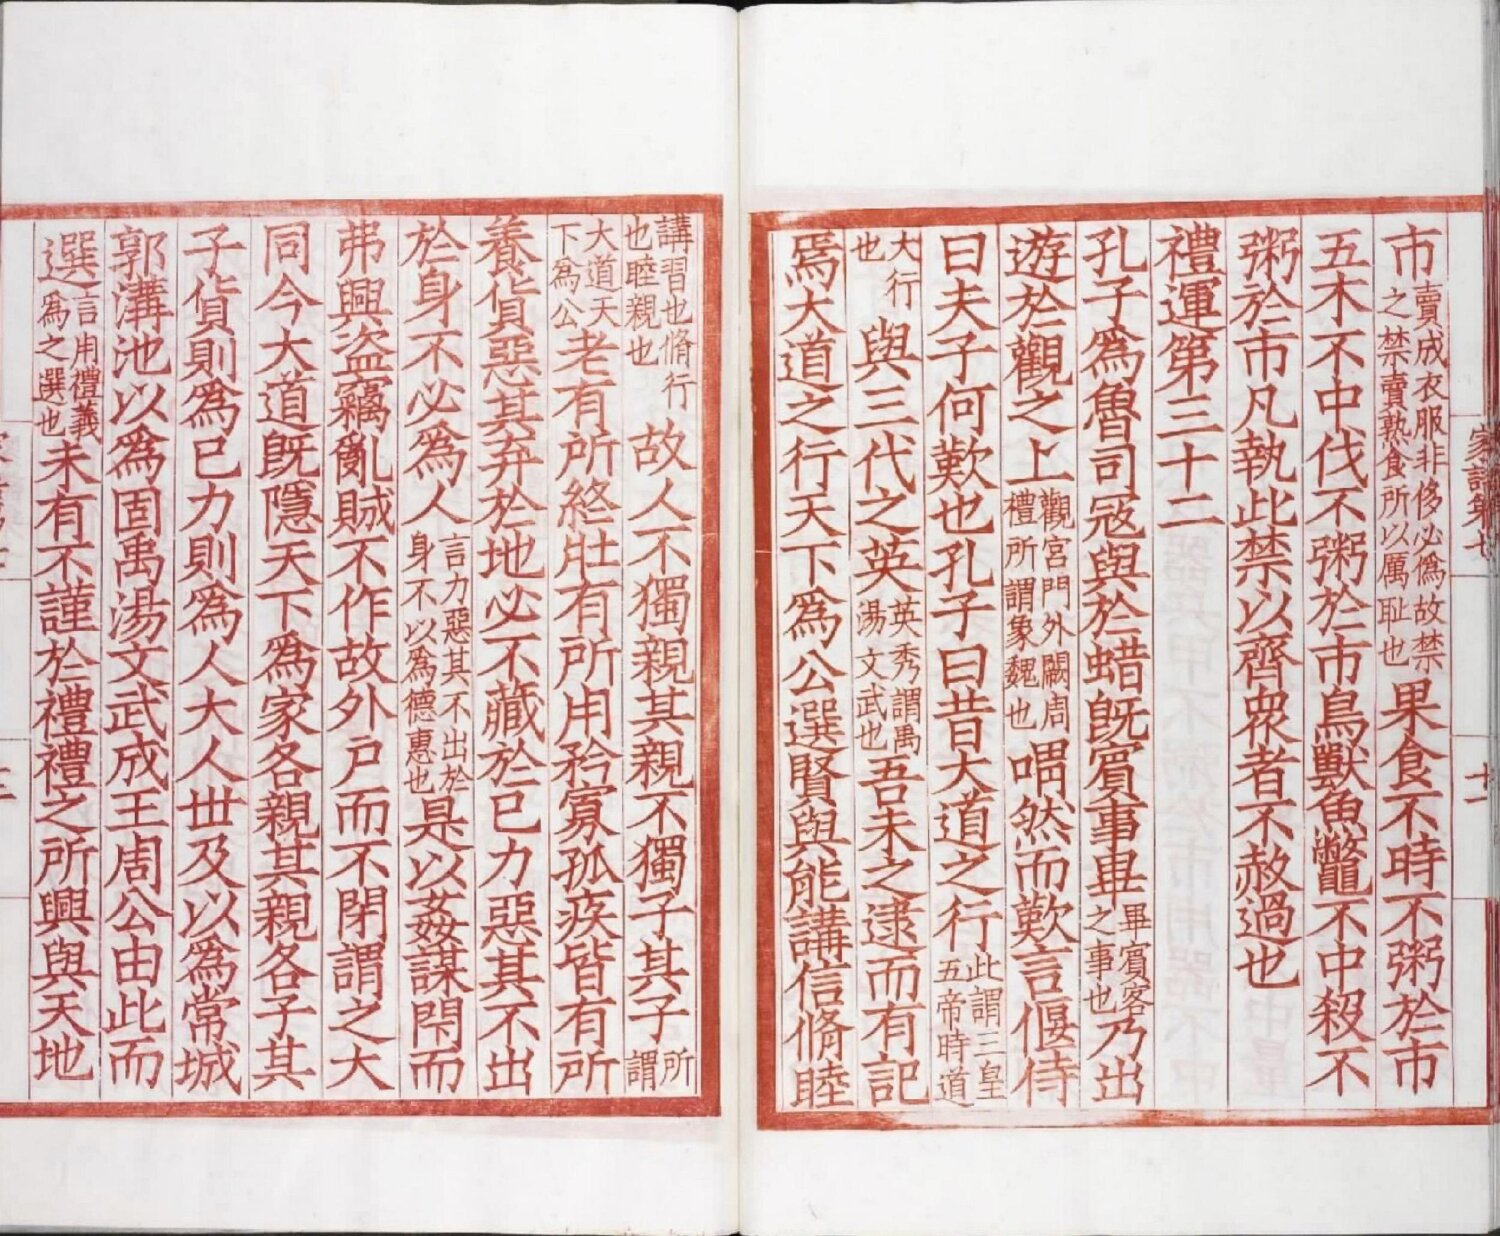 市賣成衣服非侈必僞故禁之禁賣熟食所以厲耻也果食不時不粥於市
五木不中伐不粥於市鳥獸魚鼈不中殺不
粥於市凡執此禁以齊衆者不赦過也
禮運第三十二
孔子爲魯司宼與於蜡旣賔事畢畢賔客之事也乃出
遊於觀之上觀宮門外闕周禮所謂象魏也喟然而歎言偃侍
曰夫子何歎也孔子曰昔大道之行此謂三皇五帝時道
大行也與三代之英英秀謂禹湯文武也吾未之逮而有記
焉大道之行天下爲公選賢與能講信脩睦
講習也脩行也睦親也故人不獨親其親不獨子其子所謂
大道天下爲公老有所終壯有所用矜寡孤疾皆有所
養貨惡其弃於地必不藏於已力惡其不出
於身不必爲人言力惡其不出於身不以爲德惠也是以姦謀閇而
弗興盗竊亂賊不作故外户而不閉謂之大
同今大道旣隱天下爲家各親其親各子其
子貨則爲已力則爲人大人世及以爲常城
郭溝池以爲固禹湯文武成王周公由此而
選言用禮義爲之選也未有不謹於禮禮之所興與天地
家語第七
十一